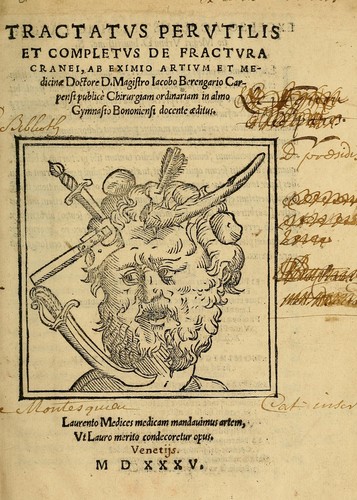 TRACTATVS PERVTILIS
ET COMPLETVS DE FRACTVRA
CRANEI, AB EXIMIO ARTIVM ET ME-
dicinæ Doctore D. Magistro Iacobo Berengario Car-
pensi publicè Chirurgiam ordinariam in almo
Gymnasio Bononiensi docente æditus.
Biblioth
D. præsidis
de Montesquieu
Cat. inscr
Laurento Medices medicam mandauimus artem,
Vt Lauro merito condecoretur opus.
Venetijs.
M D XXXV.